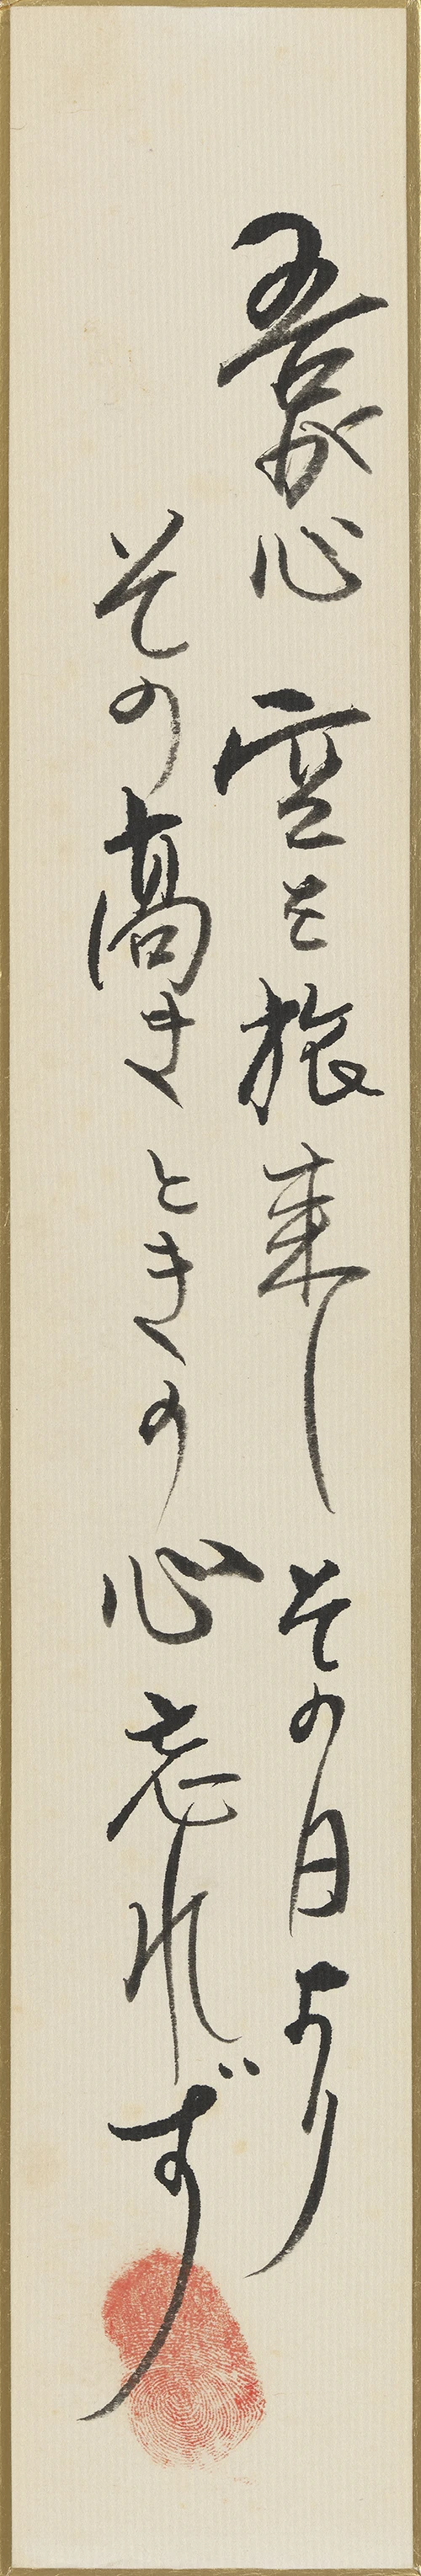 吾が心空を旅来しその日より
その高きときの心忘れず